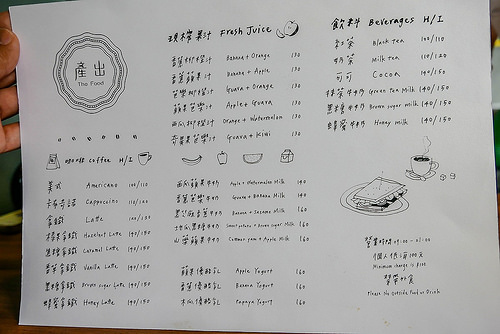 產出
Tha Food
咖啡 Coffee H/I
美式 Americano 100/110
卡布奇諾 Cappuccino 110/120
拿鐵 Latte 110/120
榛果拿鐵 Hazelnut Latte 140/150
焦糖拿鐵 Caramel Latte 140/150
香草拿鐵 Vanilla Latte 140/150
黑糖拿鐵 Brown sugar Latte 140/150
蜂蜜拿鐵 Honey Latte 140/150
現榨果汁 Fresh Juice
香蕉柳橙汁 Banana + Orange 130
香蕉蘋果汁 Banana + Apple 130
芭樂柳橙汁 Guava + Orange 130
蘋果芭樂汁 Apple + Guava 130
西瓜柳橙汁 Orange + Watermelon 130
奇異果芭樂汁 Guava + Kiwi 130
西瓜蘋果牛奶 Apple + Watermelon Milk 140
芭樂香蕉牛奶 Guava + Banana Milk 140
黑芝麻香蕉牛奶 Banana + Sesame Milk 160
地瓜黑糖牛奶 Sweet potato + Brown sugar Milk 160
山藥蘋果牛奶 Yam + Apple Milk 160
蘋果優酪乳 Apple Yogurt 160
香蕉優酪乳 Banana Yogurt 160
木瓜優酪乳 Papaya Yogurt 160
飲料 Beverages H/I
紅茶 Black Tea 100/110
奶茶 Milk Tea 110/120
可可 Cocoa 140/150
抹茶牛奶 Green Tea Milk 140/150
黑糖牛奶 Brown sugar milk 140/150
蜂蜜牛奶 Honey milk 140/150
營業時間 09:00 - 21:00
個人低消100元
Minimum charge is $100
禁帶外食
Please No Outside Food or Drink